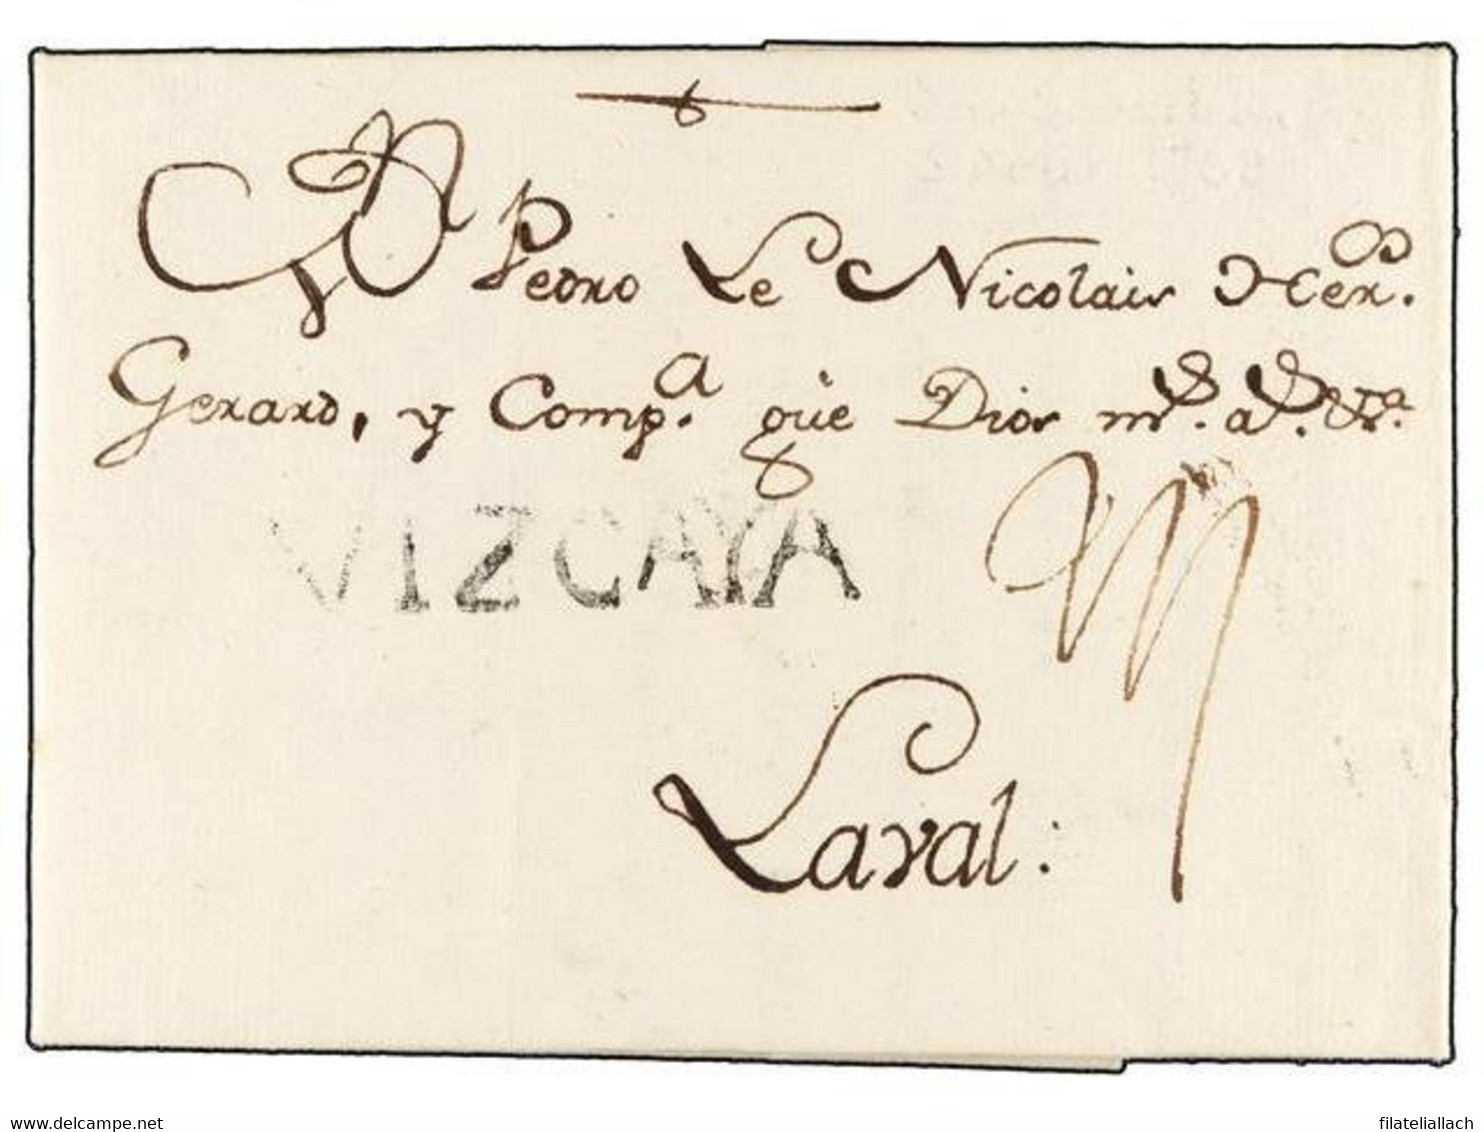 Dn Pedro Le Nicolais Her.os
Gerard, y Comp.a que Dios m.s a.s
VIZCAYA
Laval:
www.delcampe.net
filateliallach